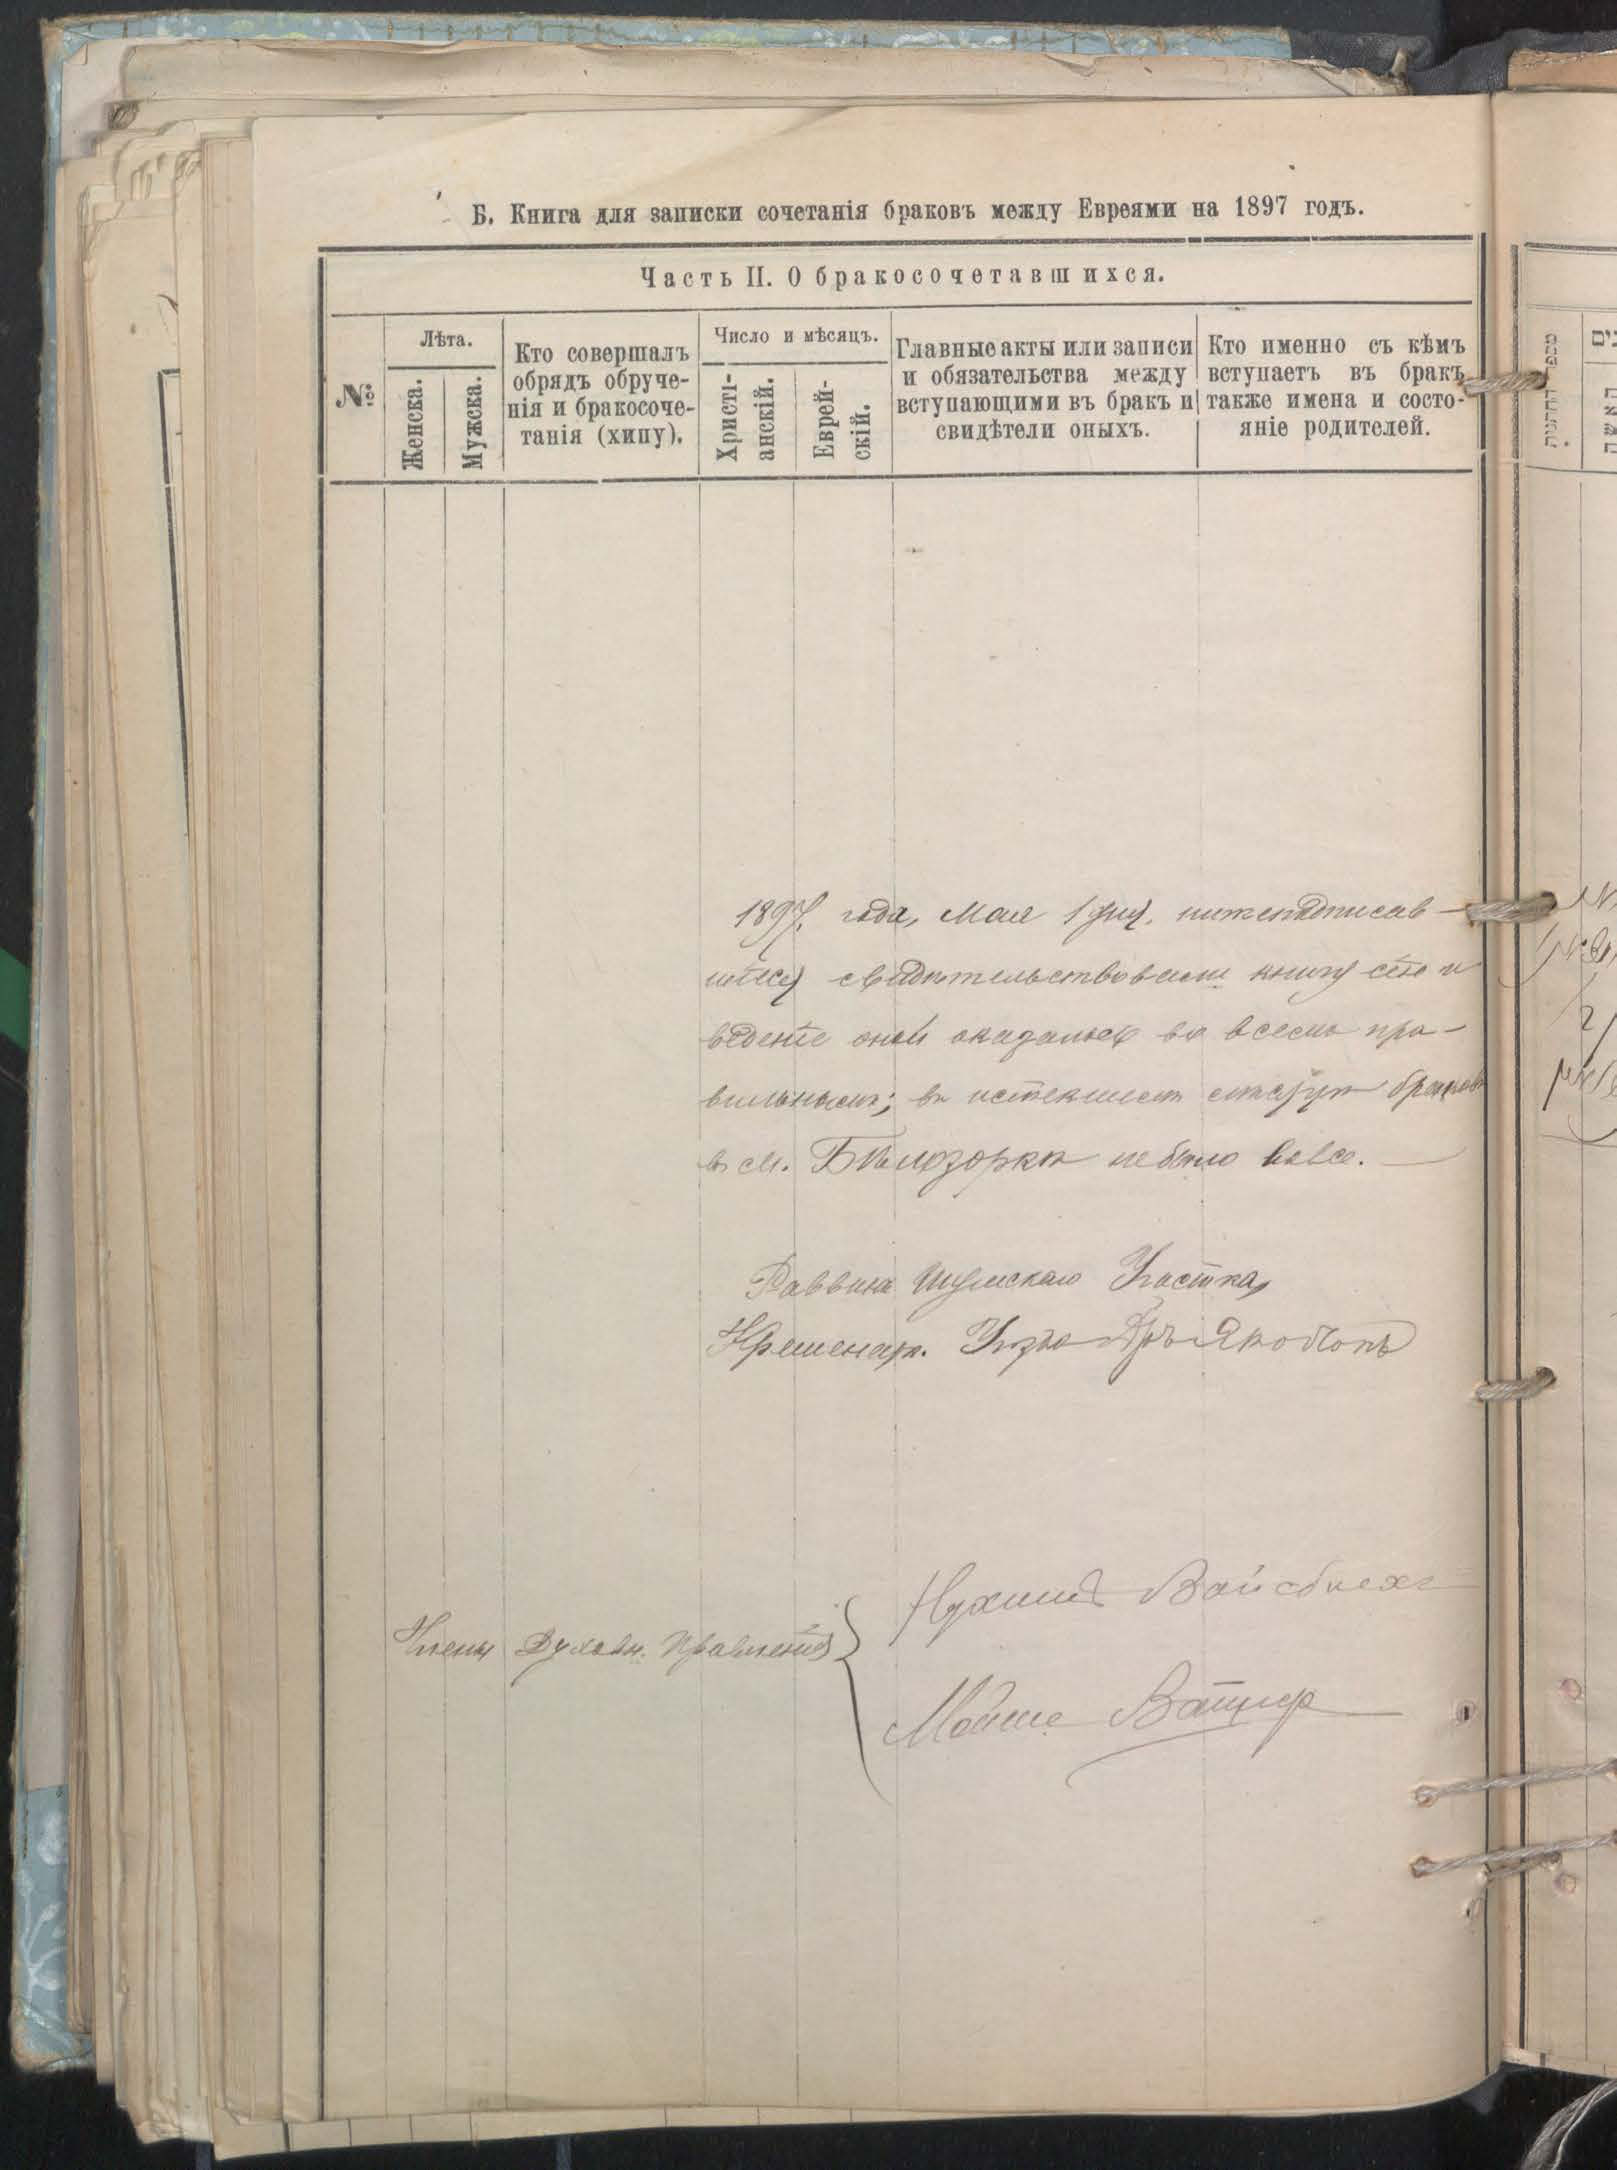 Б. Книга для записки сочетанія браковъ между Евреями на 1897 годъ.
Часть II. О бракосочетавшихся.
№
Лѣта.
Женска.
Мужска.
Кто совершалъ
обрядъ обруче-
нія и бракосоче-
танія (хипу).
Число и мѣсяцъ.
Христі-
анскій.
Еврей-
скій.
Главные акты или записи
и обязательства между
вступающими въ бракъ и
свидѣтели оныхъ.
Кто именно съ кѣмъ
вступаетъ въ бракъ
также имена и состо-
яніе родителей.
1897. года, Мая 1 дня, нижеподписав-
шіеся свидѣтельствовали книгу сію и
веденіе оной оказалось во всемъ пра-
вильнымъ; въ истекшемъ браковъ
въ м. Бѣлозоркѣ не было вовсе. —
Раввинъ Шумскаго Участка,
Кременец. Уѣзда
Члены Духовн. Правленія
Мойше